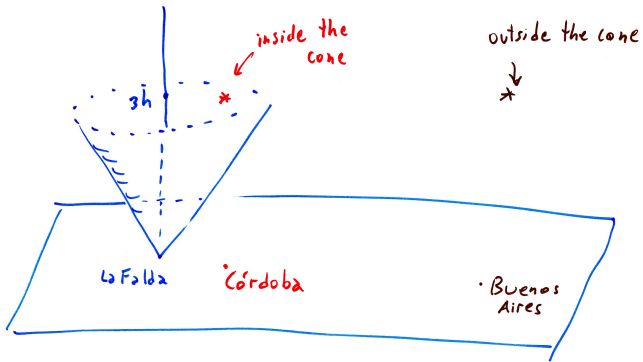 inside the
cone
outside the cone
3h
*
*
La Falda
Córdoba
Buenos
Aires